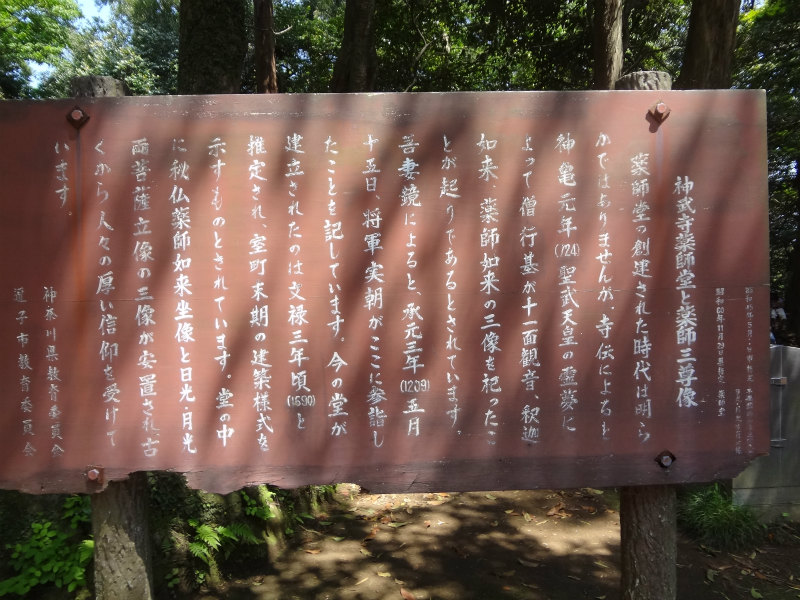 昭和60年11月29日県指定　薬師堂
神武寺薬師堂と薬師三尊像
薬師堂の創建された時代は明ら
かではありませんが、寺伝によると
神亀元年(724)聖武天皇の霊夢に
よって僧行基が十一面観音、釈迦
如来、薬師如来の三像を祀ったこ
とが起りであるとされています。
吾妻鏡によると、承元三年(1209)五月
十五日、将軍実朝がここに参詣し
たことを記しています。今の堂が
建立されたのは文禄三年頃(1590)と
推定され、室町末期の建築様式を
示すものとされています。堂の中
に秋仏薬師如来坐像と日光・月光
両菩薩立像の三像が安置され古
くから人々の厚い信仰を受けて
います。
神奈川県教育委員会
逗子市教育委員会